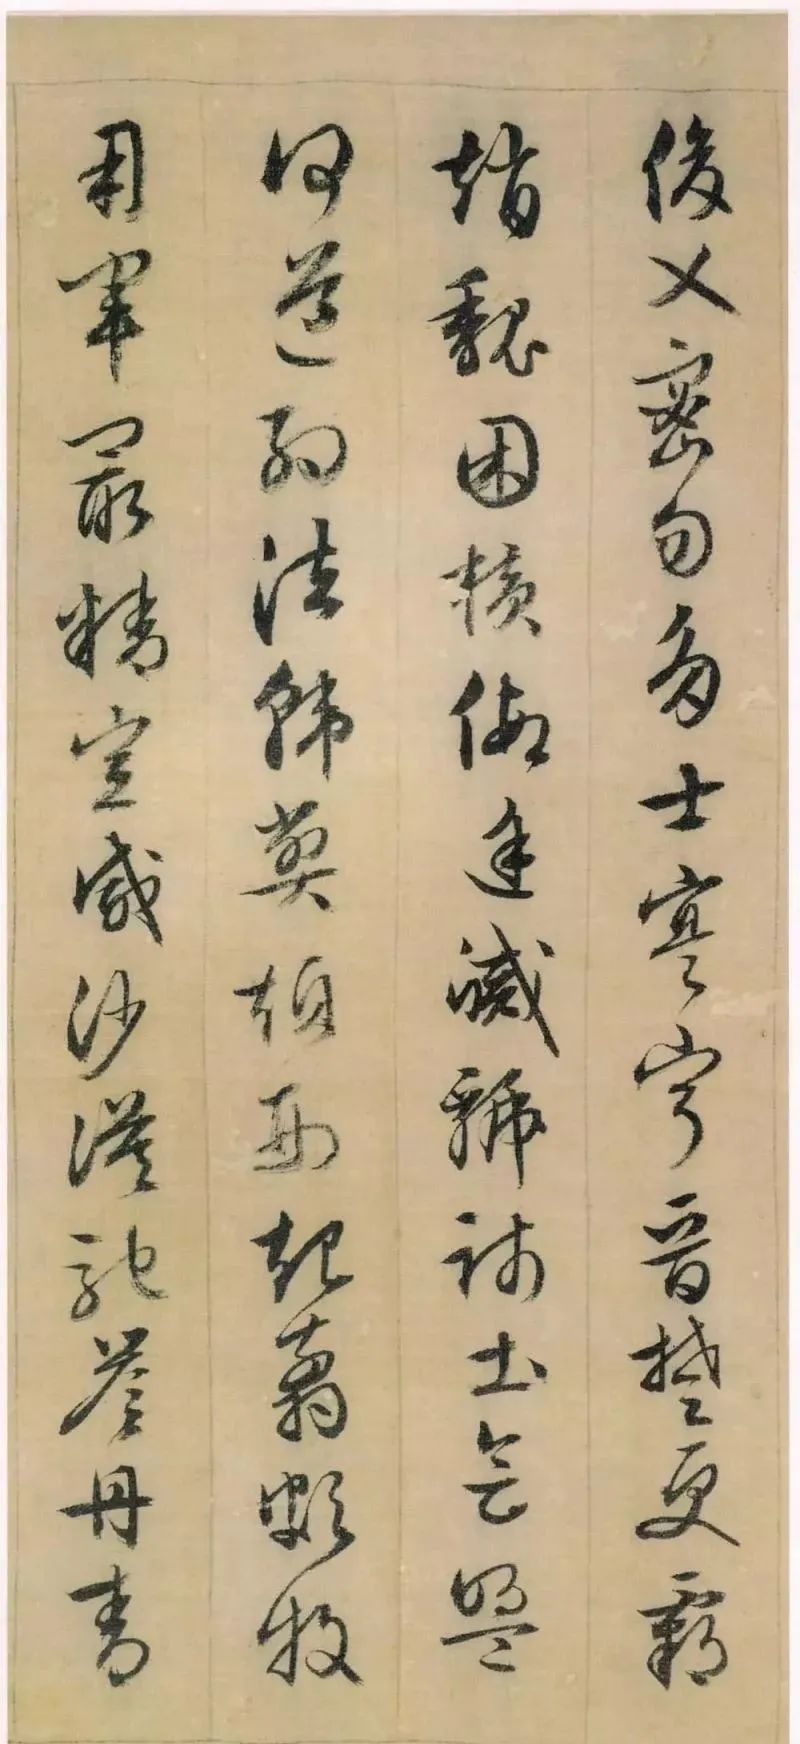 俊乂密勿多士寔寧晉楚更霸
趙魏困橫假途滅虢踐土會盟
何遵約法韓弊煩刑起翦頗牧
用軍最精宣威沙漠馳譽丹青